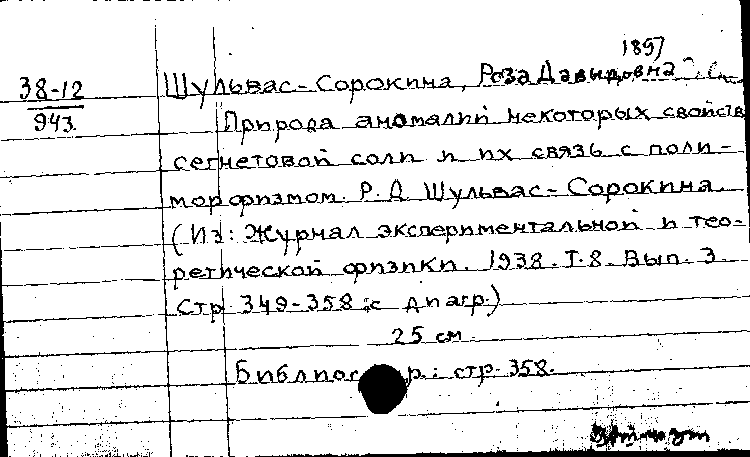 1897
38-12
943.
Шульвас-Сорокина, Роза Давыдовна
Природа аномалий некоторых свойств
сегнетовой соли и их связь с поли-
морфизмом. Р.Д. Шульвас-Сорокина.
(Из: Журнал экспериментальной и тео-
ретической физики. 1938. Т.8. Вып. 3.
Стр. 349-358 с диагр.)
25 см.
стр. 358.